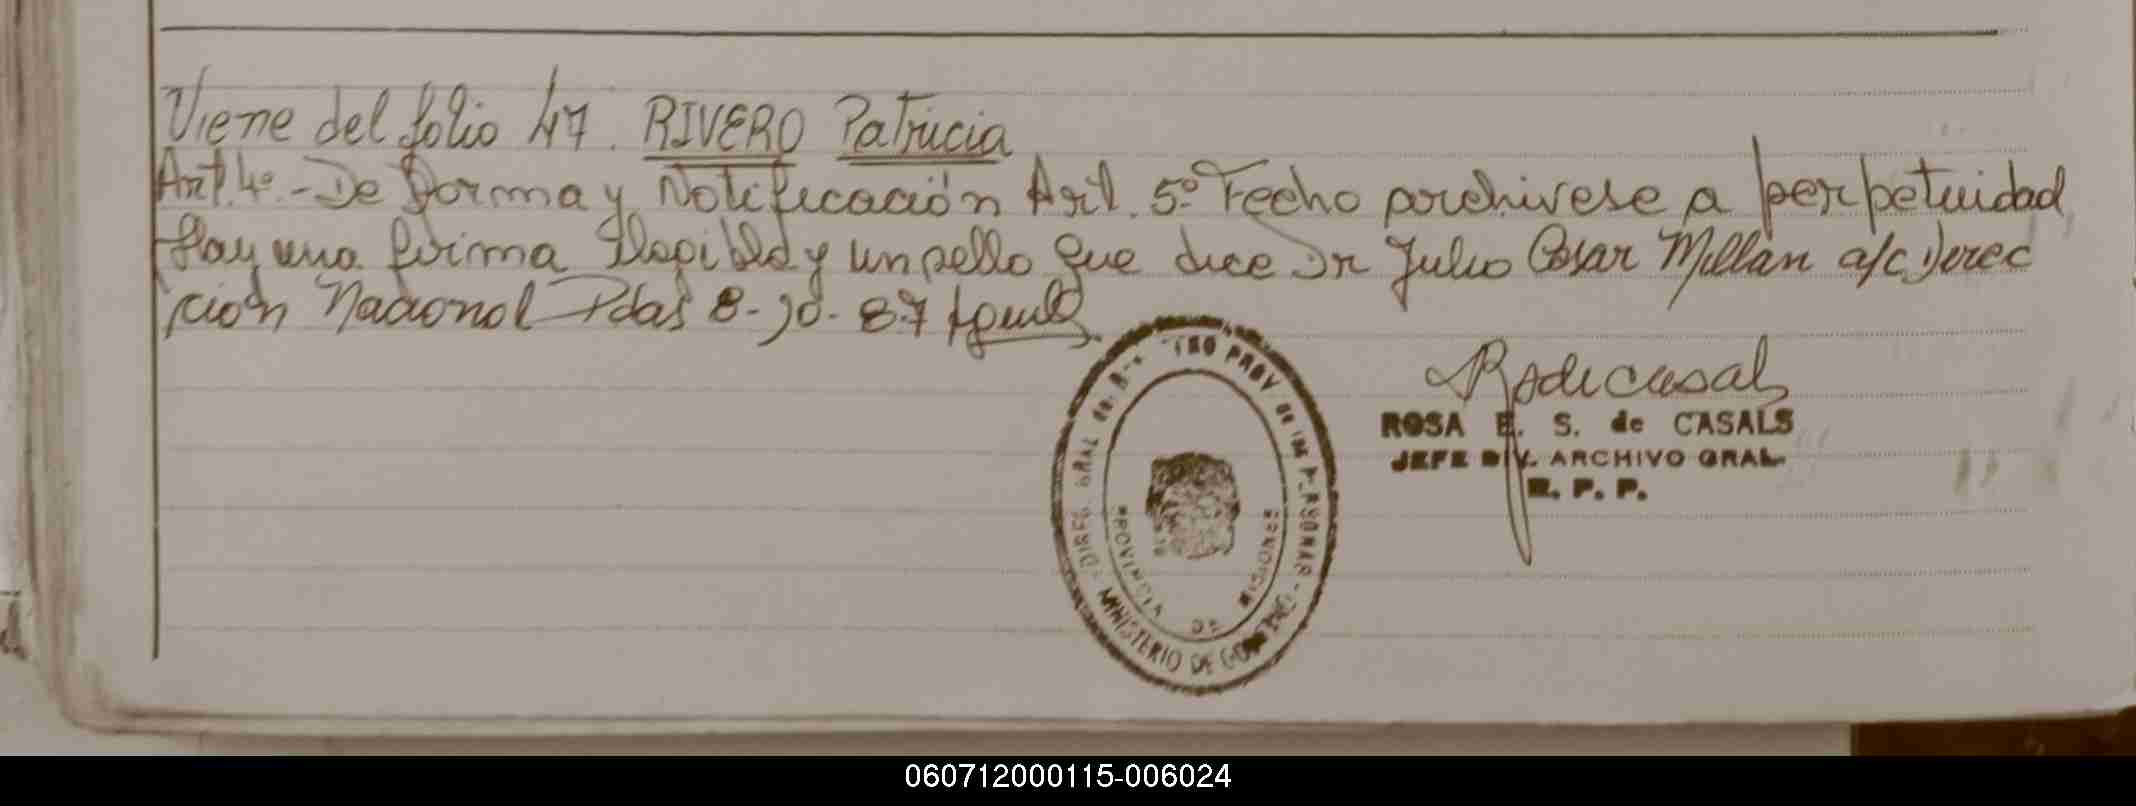 Viene del folio 47. RIVERO Patricia
Art. 4º.- De forma y Notificación Art. 5º Fecho archivese a perpetuidad
Hay una firma Ilegible y un sello que dice Dr Julio Cesar Millan a/c Direc
cion Nacional Pdas 8-10-87
DIREC. GRAL del PROV de las PERSONAS - MINISTERIO DE GOBIERNO -
PROVINCIA DE MISIONES
ROSA E. S. de CASALS
JEFE DIV. ARCHIVO GRAL.
R. P. P.
060712000115-006024